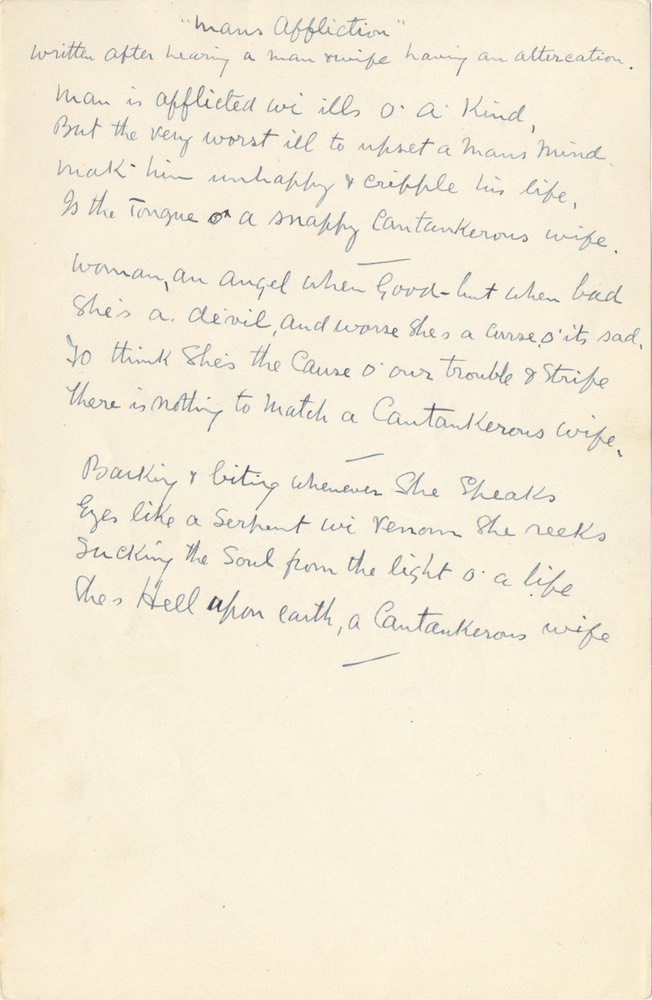 "Mans Affliction"
Written after hearing a man & wife having an altercation.
Man is afflicted wi ills o' a' Kind,
But the very worst ill to upset a Mans Mind.
Mak him unhappy & cripple his life,
Is the Tongue o' a snappy Cantankerous wife.
Woman, an angel when Good - but when bad
She's a devil, and worse She's a curse, o' its sad,
To think She's the Cause o' our trouble & Strife
There is nothing to Match a Cantankerous wife.
Barking & biting whenever She Speaks
Eyes like a Serpent wi Venom She reeks
Sucking the Soul from the light o' a life
She's Hell upon earth, a Cantankerous wife